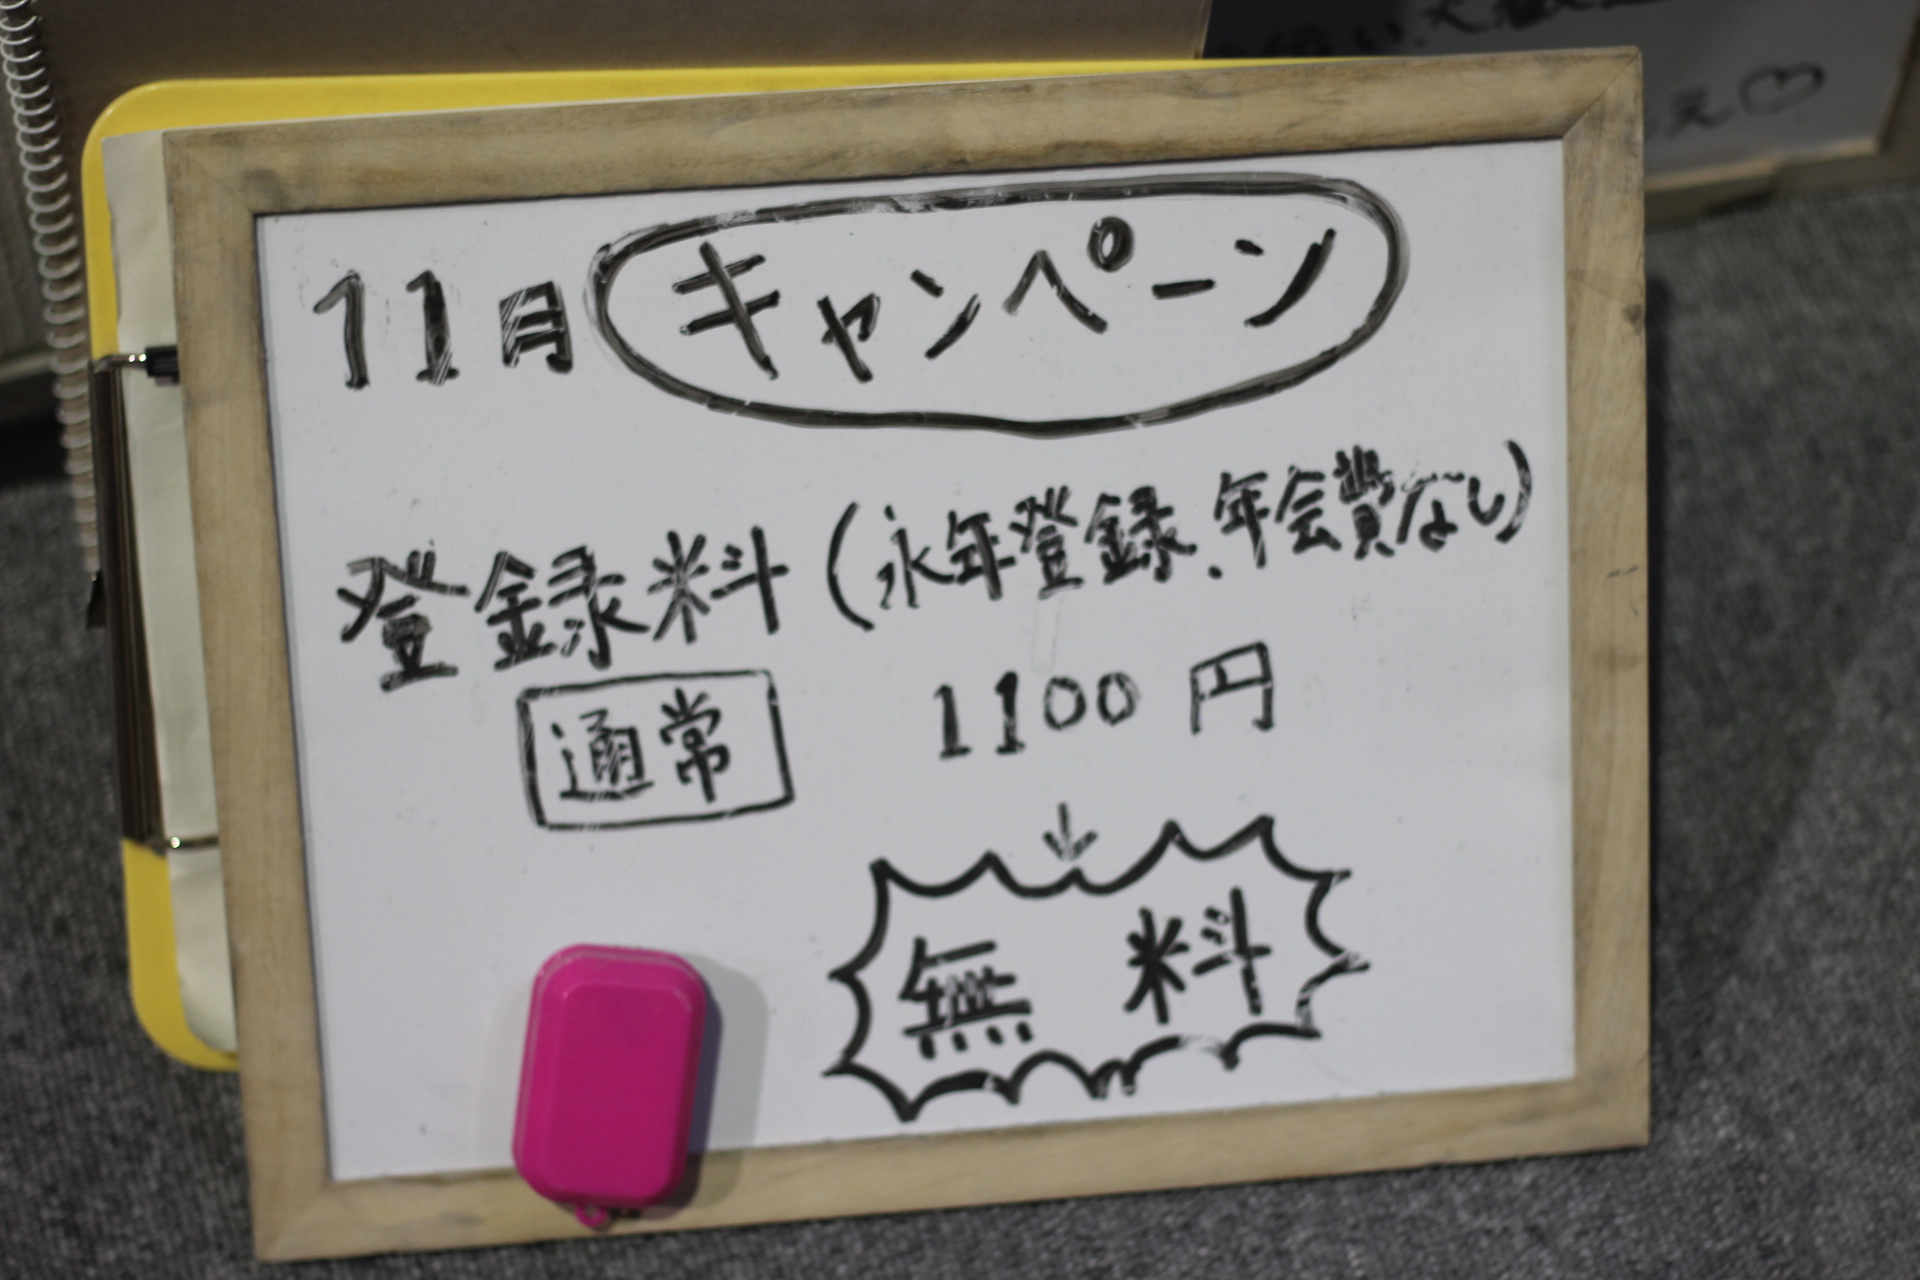 11月 キャンペーン
登録料(永年登録、年会費なし)
通常 1100円
↓
無料